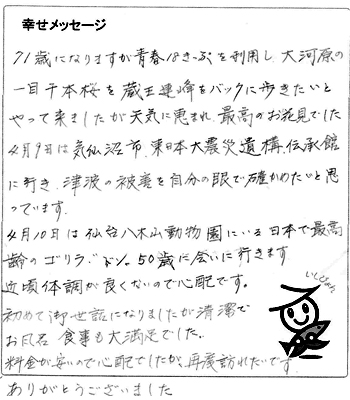 幸せメッセージ
71歳になりますが青春18きっぷを利用し大河原の
一目千本桜を蔵王連峰をバックに歩きたいと
やって来ましたが天気に恵まれ、最高のお花見でした
4月9日は気仙沼市、東日本大震災遺構、伝承館
に行き、津波の被害を自分の眼で確かめたいと思
っています。
4月10日は仙台八木山動物園にいる日本で最高
齢のゴリラ"ドン"50歳に会いに行きます
近頃体調が良くないので心配です。
初めて御世話になりましたが清潔で
お風呂 食事も大満足でした。
料金が安いので心配でしたが、再度訪れたいです
ありがとうございました